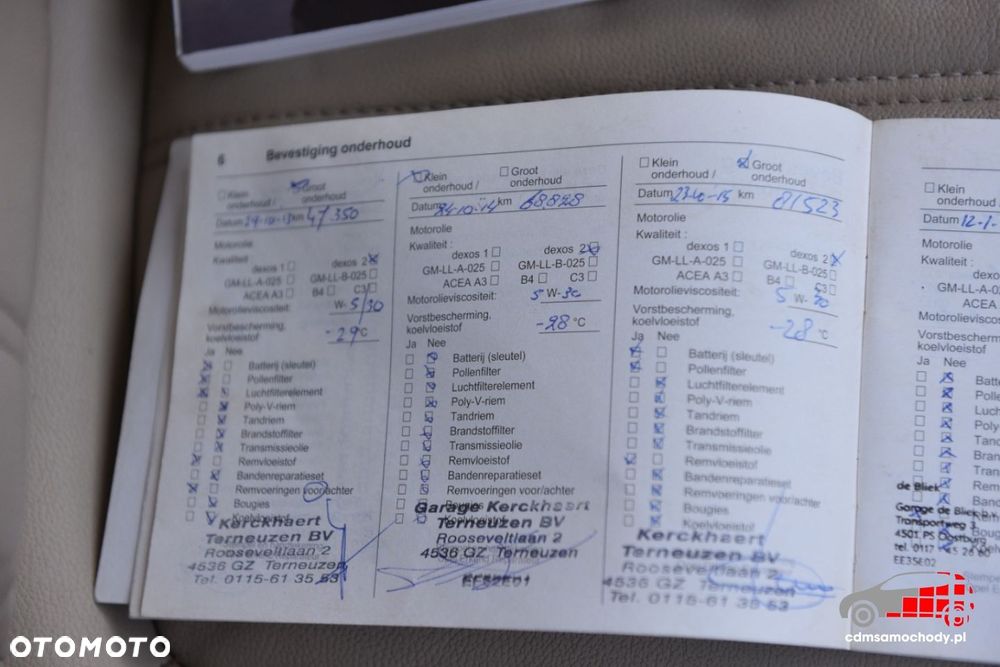 6 Bevestiging onderhoud
Klein onderhoud / Groot onderhoud
Datum 29-10-13 km 47350
Motorolie
Kwaliteit
dexos 1 dexos 2
GM-LL-A-025 GM-LL-B-025
ACEA A3 B4 C3
Motorolieviscositeit: W- 5/30
Vorstbescherming,
koelvloeistof -29°C
Ja Nee
Batterij (sleutel)
Pollenfilter
Luchtfilterelement
Poly-V-riem
Tandriem
Brandstoffilter
Transmissieolie
Remvloeistof
Bandenreparatieset
Remvoeringen voor/achter
Bougies
Koelvloeistof
Kerckhaert
Terneuzen BV
Rooseveltlaan 2
4536 GZ Terneuzen
Tel. 0115-61 35 53
Klein onderhoud / Groot onderhoud
Datum 24-10-14 km 68828
Motorolie
Kwaliteit :
dexos 1 dexos 2
GM-LL-A-025 GM-LL-B-025
ACEA A3 B4 C3
Motorolieviscositeit: 5 W-30
Vorstbescherming,
koelvloeistof -28 °C
Ja Nee
Batterij (sleutel)
Pollenfilter
Luchtfilterelement
Poly-V-riem
Tandriem
Brandstoffilter
Transmissieolie
Remvloeistof
Bandenreparatieset
Remvoeringen voor/achter
Bougies
Koelvloeistof
Garage Kerckhaert
Terneuzen BV
Rooseveltlaan 2
4536 GZ Terneuzen
EE52E01
Klein onderhoud / Groot onderhoud
Datum 23-10-15 km 81523
Motorolie
Kwaliteit :
dexos 1 dexos 2
GM-LL-A-025 GM-LL-B-025
ACEA A3 B4 C3
Motorolieviscositeit: 5 W-30
Vorstbescherming,
koelvloeistof -28 °C
Ja Nee
Batterij (sleutel)
Pollenfilter
Luchtfilterelement
Poly-V-riem
Tandriem
Brandstoffilter
Transmissieolie
Remvloeistof
Bandenreparatieset
Remvoeringen voor/achter
Bougies
Koelvloeistof
Kerckhaert
Terneuzen BV
Rooseveltlaan 2
4536 GZ Terneuzen
Tel. 0115-61 35 53
Klein
onderhoud /
Datum 12-1-
Motorolie
Kwaliteit :
dexos
GM-LL-A-02
ACEA
Motorolieviscos
Vorstbescherm
koelvloeistof
Ja Nee
Batte
Polle
Luch
Poly
Tand
Bran
Tran
Rem
Band
Rem
Boug
de Bliek
Garage de Bliek b.v.
Transportweg 3
4501 PS Oostburg
EE35E02
OTOMOTO
cdmsamochody.pl